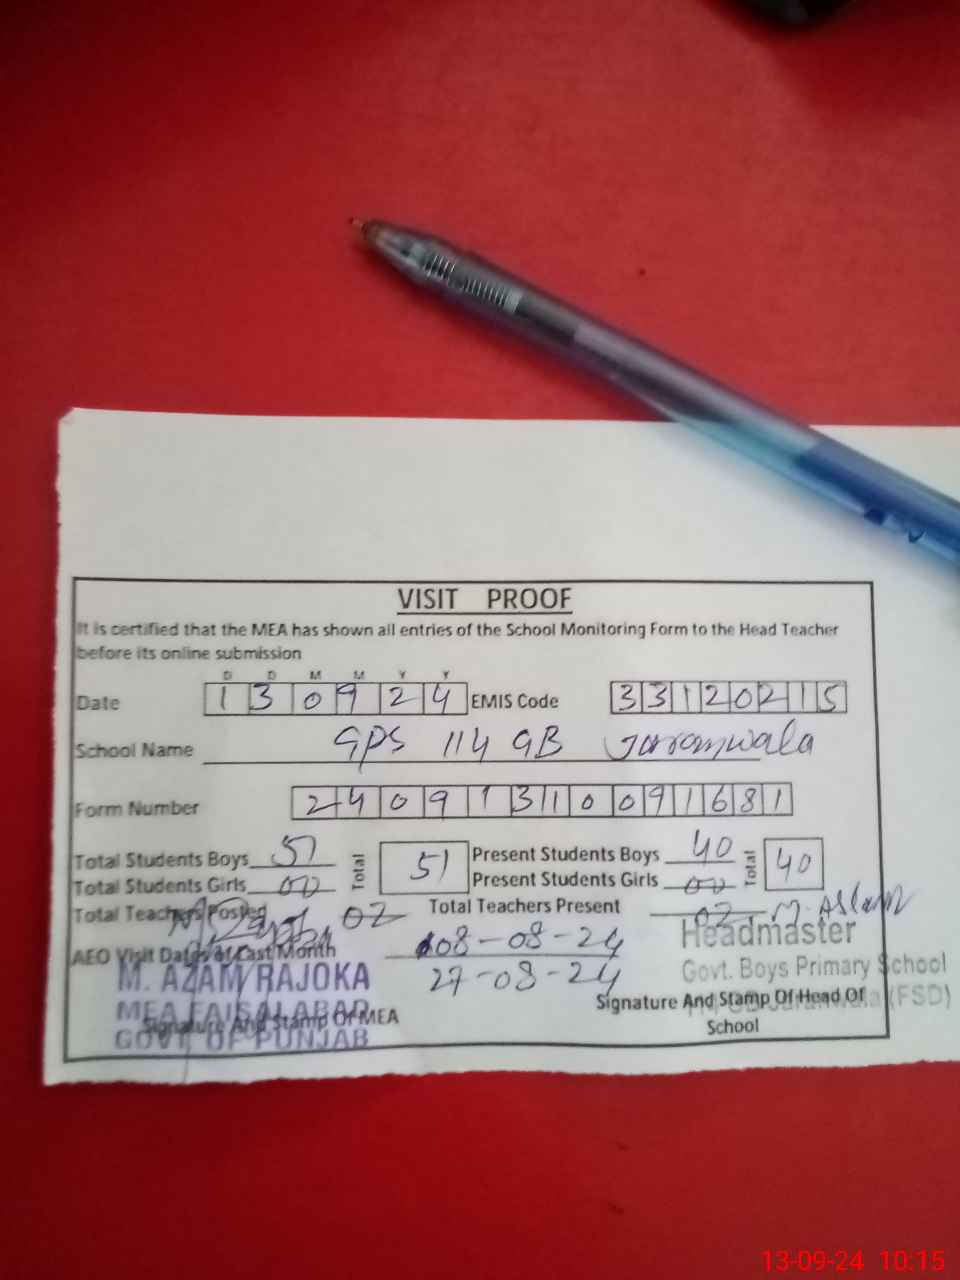 VISIT PROOF
It is certified that the MEA has shown all entries of the School Monitoring Form to the Head Teacher
before its online submission
D D M M Y Y
Date 1 3 0 9 2 4 EMIS Code 3 3 1 2 0 2 1 5
School Name GPS 114 GB Jaranwala
Form Number 2 4 0 9 1 3 1 0 0 9 1 6 8 1
Total Students Boys 51 Total 51 Present Students Boys 40 Total 40
Total Students Girls 00 Present Students Girls 00
Total Teachers Posted 02 Total Teachers Present 02 M. Aslam
AEO Visit Dates of Last Month 08-08-24
27-08-24
M. AZAM RAJOKA
MEA FAISALABAD
GOVT. OF PUNJAB
Signature And Stamp Of MEA
Headmaster
Govt. Boys Primary School
GB Jaranwala (FSD)
Signature And Stamp Of Head Of
School
13-09-24 10:15